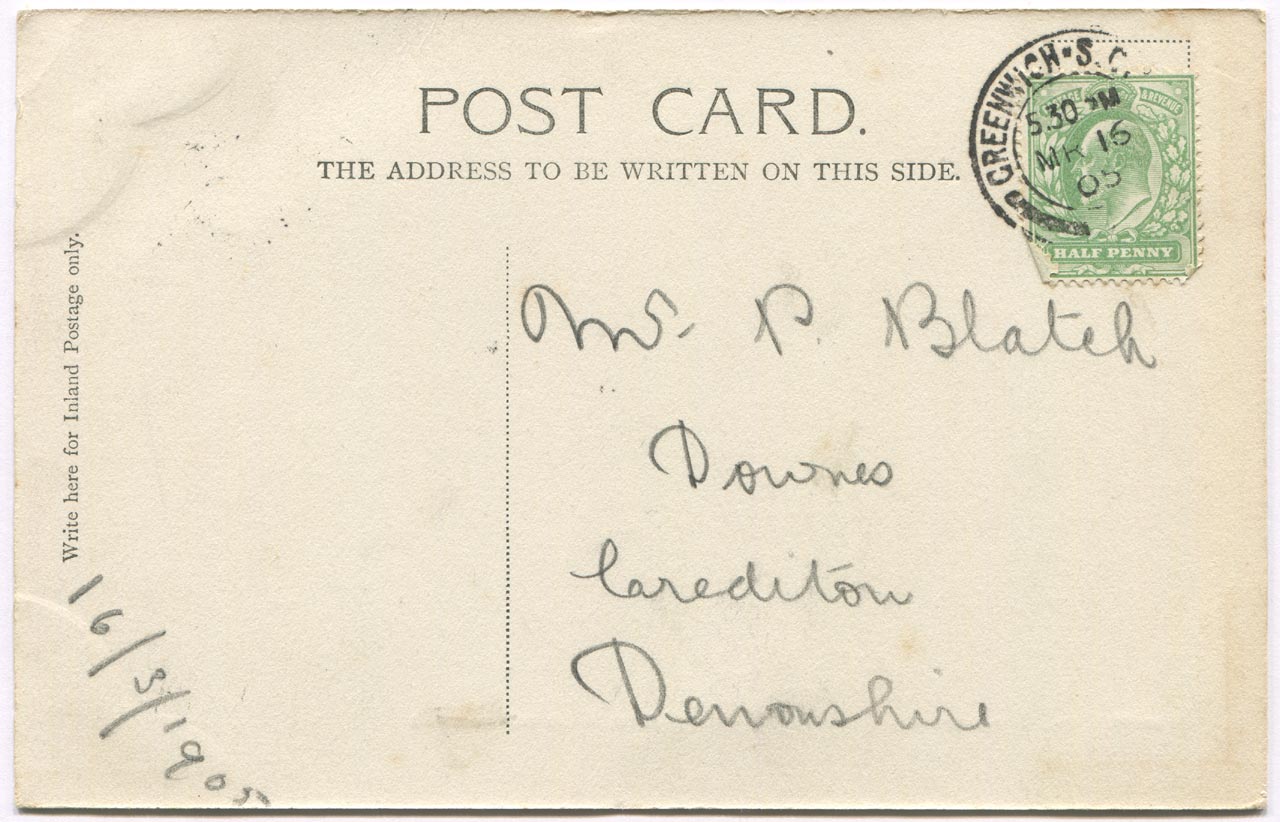 POST CARD.
THE ADDRESS TO BE WRITTEN ON THIS SIDE.
GREENWICH·S.O.
5.30 PM
MR 16
05
POSTAGE & REVENUE
HALF PENNY
Write here for Inland Postage only.
16/3/1905
Mr. P. Blatch
Downes
Carediton
Devonshire